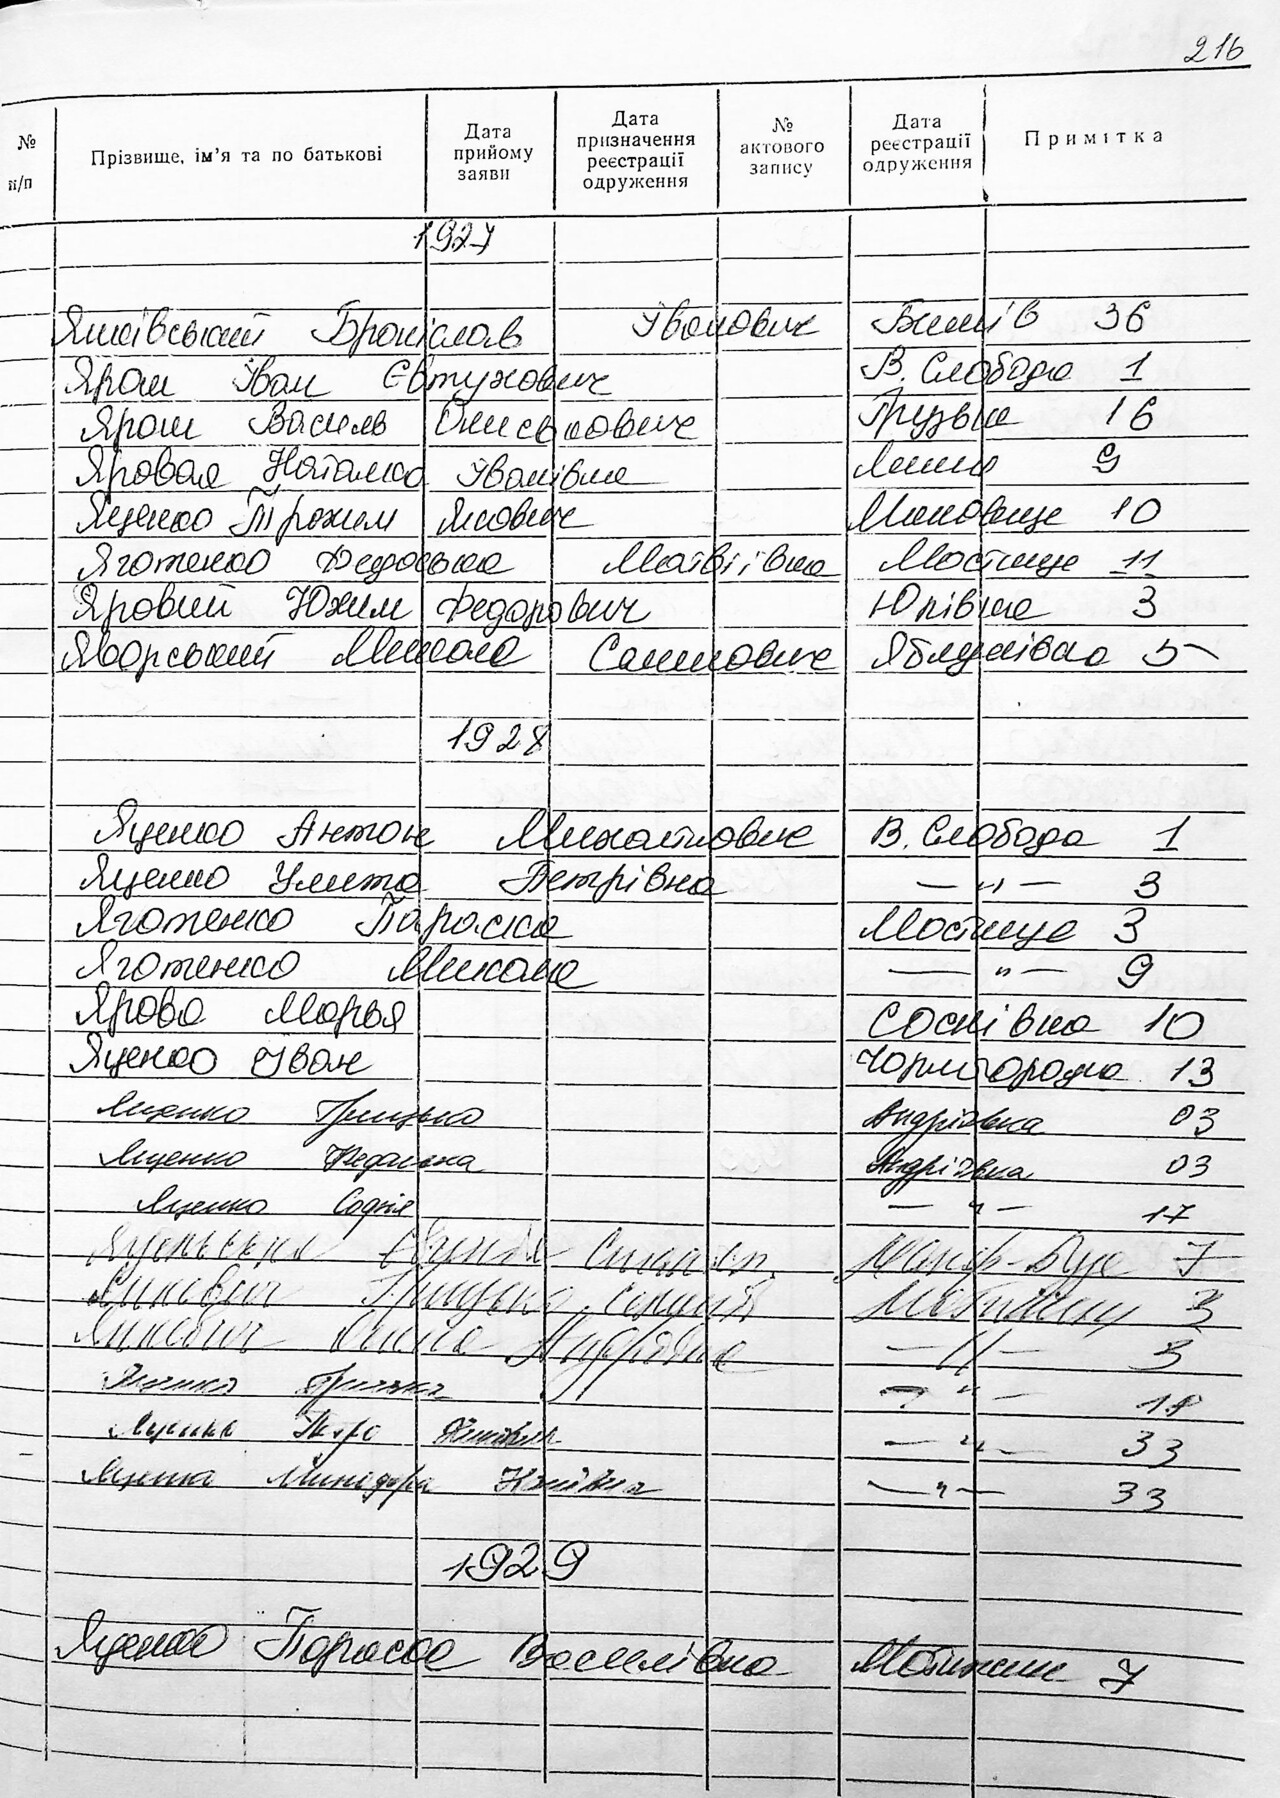 216
№ п/п Прізвище, ім'я та по батькові Дата прийому заяви Дата призначення реєстрації одруження № актового запису Дата реєстрації одруження Примітка
1927
Броніслав Іванович 36
Ярош Іван Євтухович В. Слобода 1
Ярош Василь Ониськович Грузьке 16
Яровая Наталка Іванівна 9
Яценко Трохим Якович Маковище 10
Яготенко Федоська Матвіївна Мостище 11
Яровий Юхим Федорович Юрівка 3
Яворський Микола Яблунівка 5
1928
Яценко Антон Михайлович В. Слобода 1
Яценко Улита Петрівна —"— 3
Яготенко Параска Мостище 3
Яготенко Микола —"— 9
Ярова Марья Соснівка 10
Яценко Іван Чорногородка 13
Яценко Грицько Андріївка 03
Яценко Федоська Андріївка 03
Яценко Софія —"— 17
7
Янкевич Грицько 3
Янкевич Андріївна —"— 3
Яценко —"— 18
Яценко Петро —"— 33
Яценко Минодора —"— 33
1929
Яценко Параска Василівна Мотижин 7